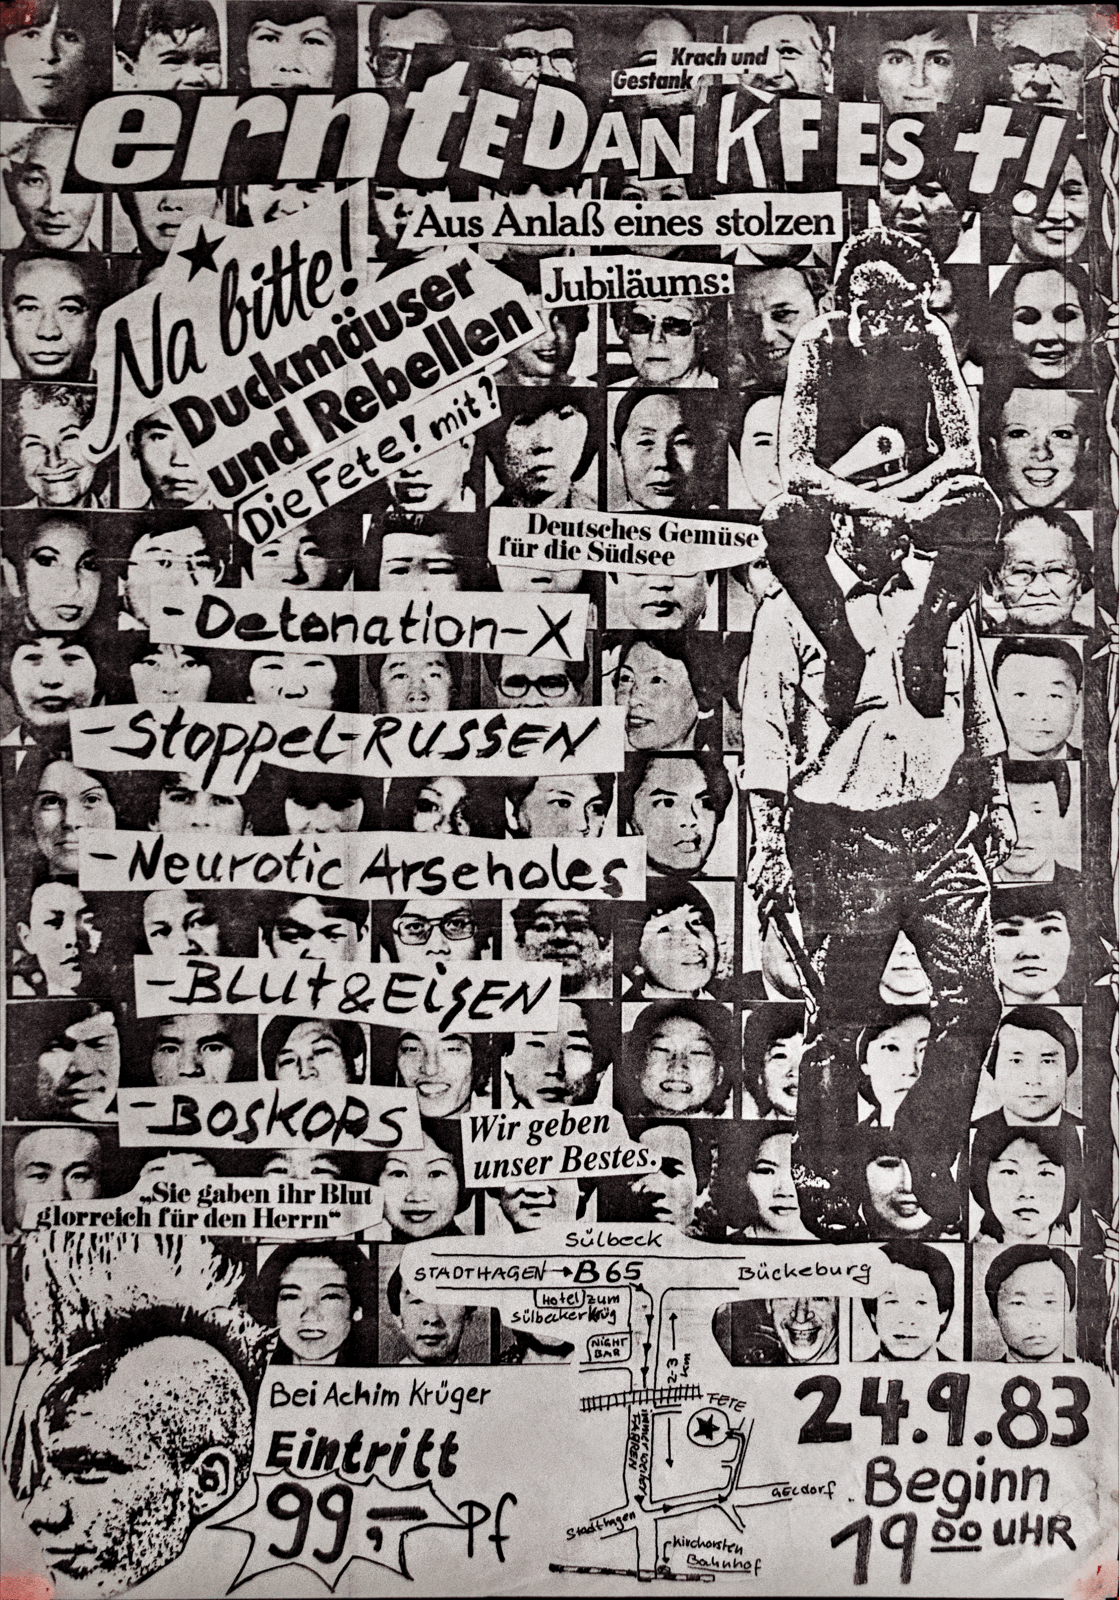 Krach und
Gestank
erntEDANKFEST!
Aus Anlaß eines stolzen
Jubiläums:
Na bitte!
Duckmäuser
und Rebellen
Die Fete! mit?
Deutsches Gemüse
für die Südsee
-Detonation-X
-Stoppel-RUSSEN
-Neurotic Arseholes
-BLUt & EisEN
-BOSKOPS
Wir geben
unser Bestes.
„Sie gaben ihr Blut
glorreich für den Herrn“
Sülbeck
STADTHAGEN → B65
Bückeburg
Hotel zum
Sülbecker Krug
NIGHT
BAR
2-3
km
FETE
immer weiter
FAHREN
GELldorf
Stadthagen
Kirchorsten
Bahnhof
Bei Achim Krüger
Eintritt
99,- Pf
24.9.83
Beginn
19 00 UHR